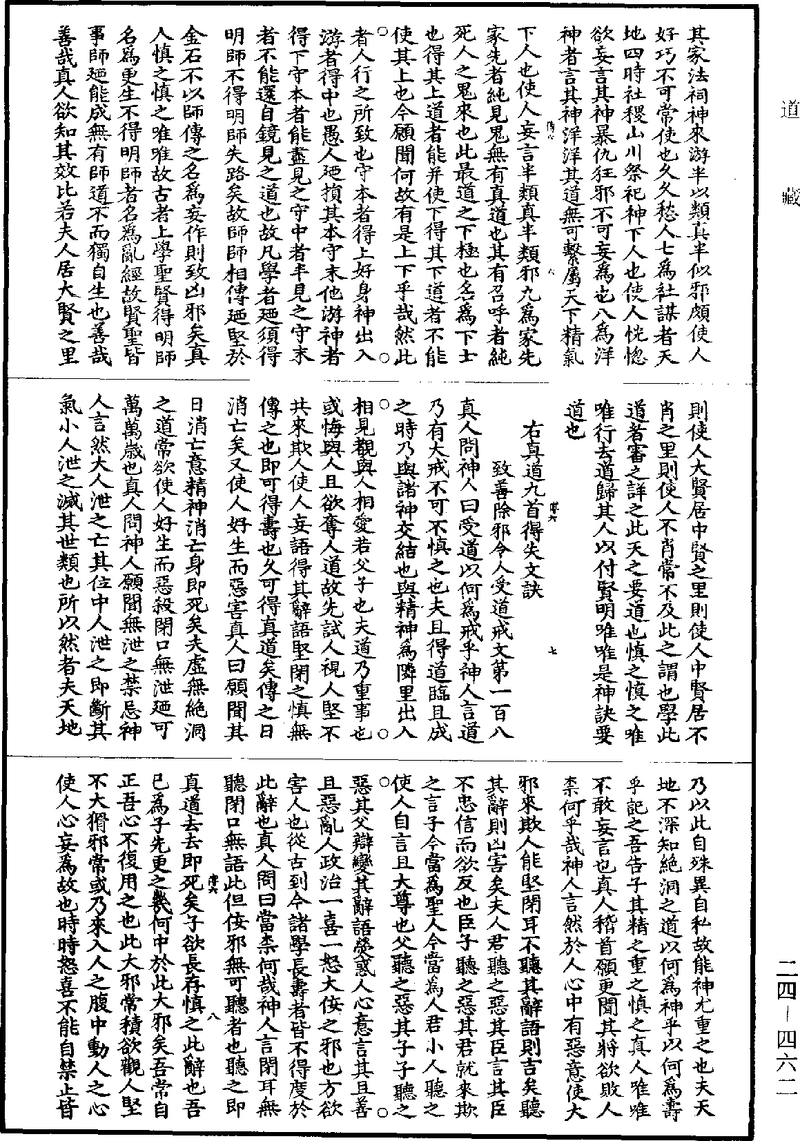 道藏
其家法祠神來游半以類真半似邪頗使人
好巧不可常使也久久愁人七為社謀者天
地四時社稷山川祭祀神下人也使人恍惚
欲妄言其神暴仇狂邪不可妄為也八為洋
神者言其神洋洋其道無可繫屬天下精氣
下人也使人妄言半類真半類邪九為家先
家先者純見鬼無有真道也其有召呼者純
死人之鬼來也此最道之下極也名為下士
也得其上道者能并使下得其下道者不能
使其上也今願聞何故有是上下乎哉然此
者人行之所致也守本者得上好身神出入
游者得中也愚人廼損其本守末他游神者
得下守本者能盡見之守中者半見之守末
者不能還自鏡見之道也故凡學者廼須得
明師不得明師失路矣故師師相傳廼堅於
金石不以師傳之名為妄作則致凶邪矣真
人慎之慎之唯唯故古者上學聖賢得明師
名為更生不得明師者名為亂經故賢聖皆
事師廼能成無有師道不而獨自生也善哉
善哉真人欲知其效比若夫人居大賢之里
則使人大賢居中賢之里則使人中賢居不
肖之里則使人不肖常不及此之謂也學此
道者審之詳之此天之要道也慎之慎之唯
唯行去道歸其人以付賢明唯唯是神訣要
道也
右真道九首得失文訣
致善除邪令人受道戒文第一百八
真人問神人曰受道以何為戒乎神人言道
乃有大戒不可不慎之也夫且得道臨且成
之時乃與諸神交結也與精神為隣里出入
相見觀與人相愛若父子也夫道乃重事也
或悔與人且欲奪人道故先試人視人堅不
共來欺人使人妄語得其辭語堅閉之慎無
傳之也即可得壽也久可得真道矣傳之日
消亡矣又使人好生而惡害真人曰願聞其
日消亡意精神消亡身即死矣夫虛無絕洞
之道常欲使人好生而惡殺閉口無泄廼可
萬萬歲也真人問神人願聞無泄之禁忌神
人言然大人泄之亡其位中人泄之即斷其
氣小人泄之滅其世類也所以然者夫天地
乃以此自殊異自私故能神尤重之也夫天
地不深知絕洞之道以何為神乎以何為壽
乎記之吾告子其精之重之慎之真人唯唯
不敢妄言也真人稽首願更聞其將欲敗人
柰何乎哉神人言然於人心中有惡意使大
邪來欺人能堅閉耳不聽其辭語則吉矣聽
其辭則凶害矣夫人君聽之惡其臣言其臣
不忠信而欲反也臣子聽之惡其君就來欺
之言子今當為聖人今當為人君小人聽之
使人自言且大尊也父聽之惡其子子聽之
惡其父辯變其辭語熒惑人心意言其且善
且惡亂人政治一喜一怒大佞之邪也方欲
害人也從古到今諸學長壽者皆不得度於
此辭也真人問曰當柰何哉神人言閉耳無
聽閉口無語此但佞邪無可聽者也聽之即
真道去去即死矣子欲長存慎之此辭也吾
已為子先更之幾何中於此大邪矣吾常自
正吾心不復用之也此大邪常積欲觀人堅
不大猾邪常或乃來入人之腹中動人之心
使人心妄為故也時時怒喜不能自禁止皆
二四-四六二